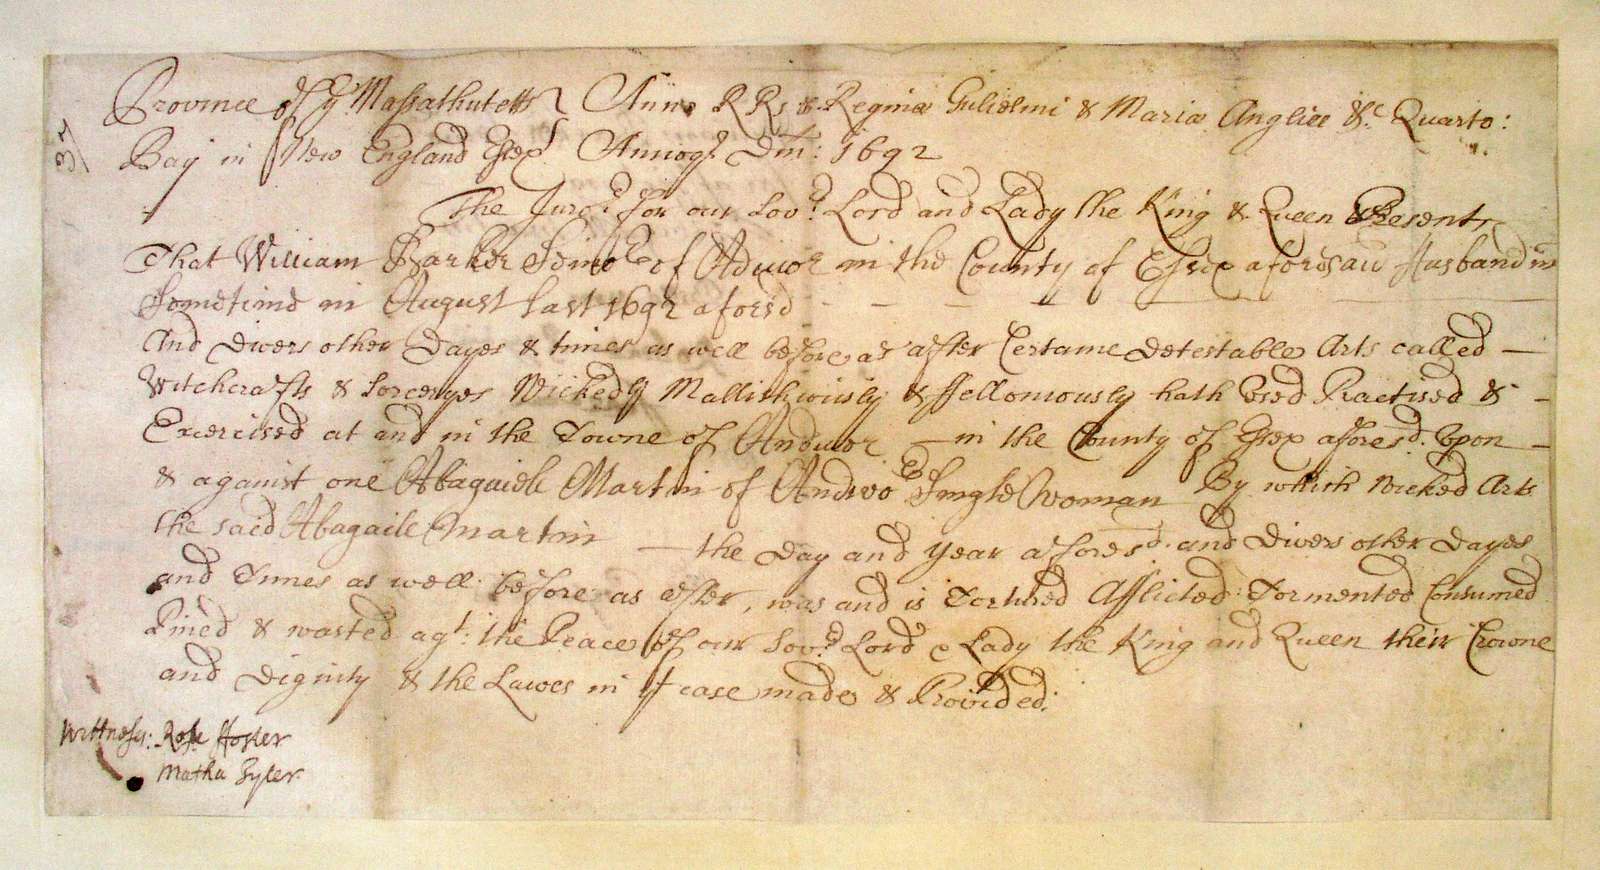 37
Province of yᵉ Massathutetts Anno RRs & Reginæ Gulielmi & Mariæ Angliæ &c Quarto:
Bay in New England Essex Annoqᵉ Dm: 1692
The Juroʳˢ for our Sovʳ Lord and Lady the King & Queen Presents
That William Barker Seinoʳ of Andivor in the County of Essex aforesaid Husbandmⁿ
Sometime in August last 1692 aforsd - - - -
And divers other Dayes & times as well before as after Certaine detestable Arts called —
Witchcrafts & Sorceryes Wickedly Mallishiously & ffelloniously hath Vsed Practised & -
Exercised at and in the Towne of Andivor — in the County of Essex aforesᵈ. Vpon -
& against one Abagaiel Martin of Andivoʳ Single Woman By which wicked Arts
the said Abagaile Martin — the day and year aforesᵈ. and divers other Dayes
and Times as well before as after, was and is Tortured Afflicted Tormented Consumed
Pined & wasted agᵗ: the Peace of our Sovʳ: Lord & Lady the King and Queen their Crowne
and Dignity & the Lawes in yᵗ case made & Provided:
Wittness: Rose ffoster
Matha Tyler